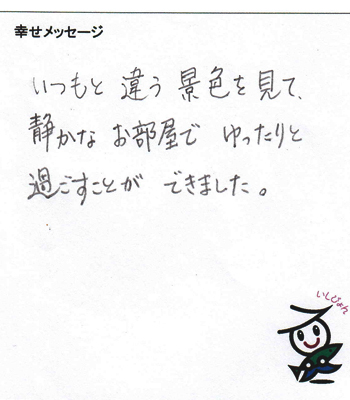 幸せメッセージ
いつもと 違う 景色を見て、
静かな お部屋で ゆったりと
過ごすことが できました。
いしぴょん